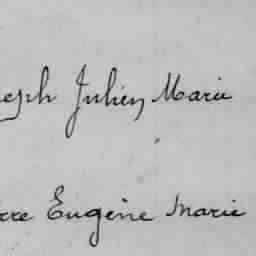 eph Julien Marie
rre Eugène Marie